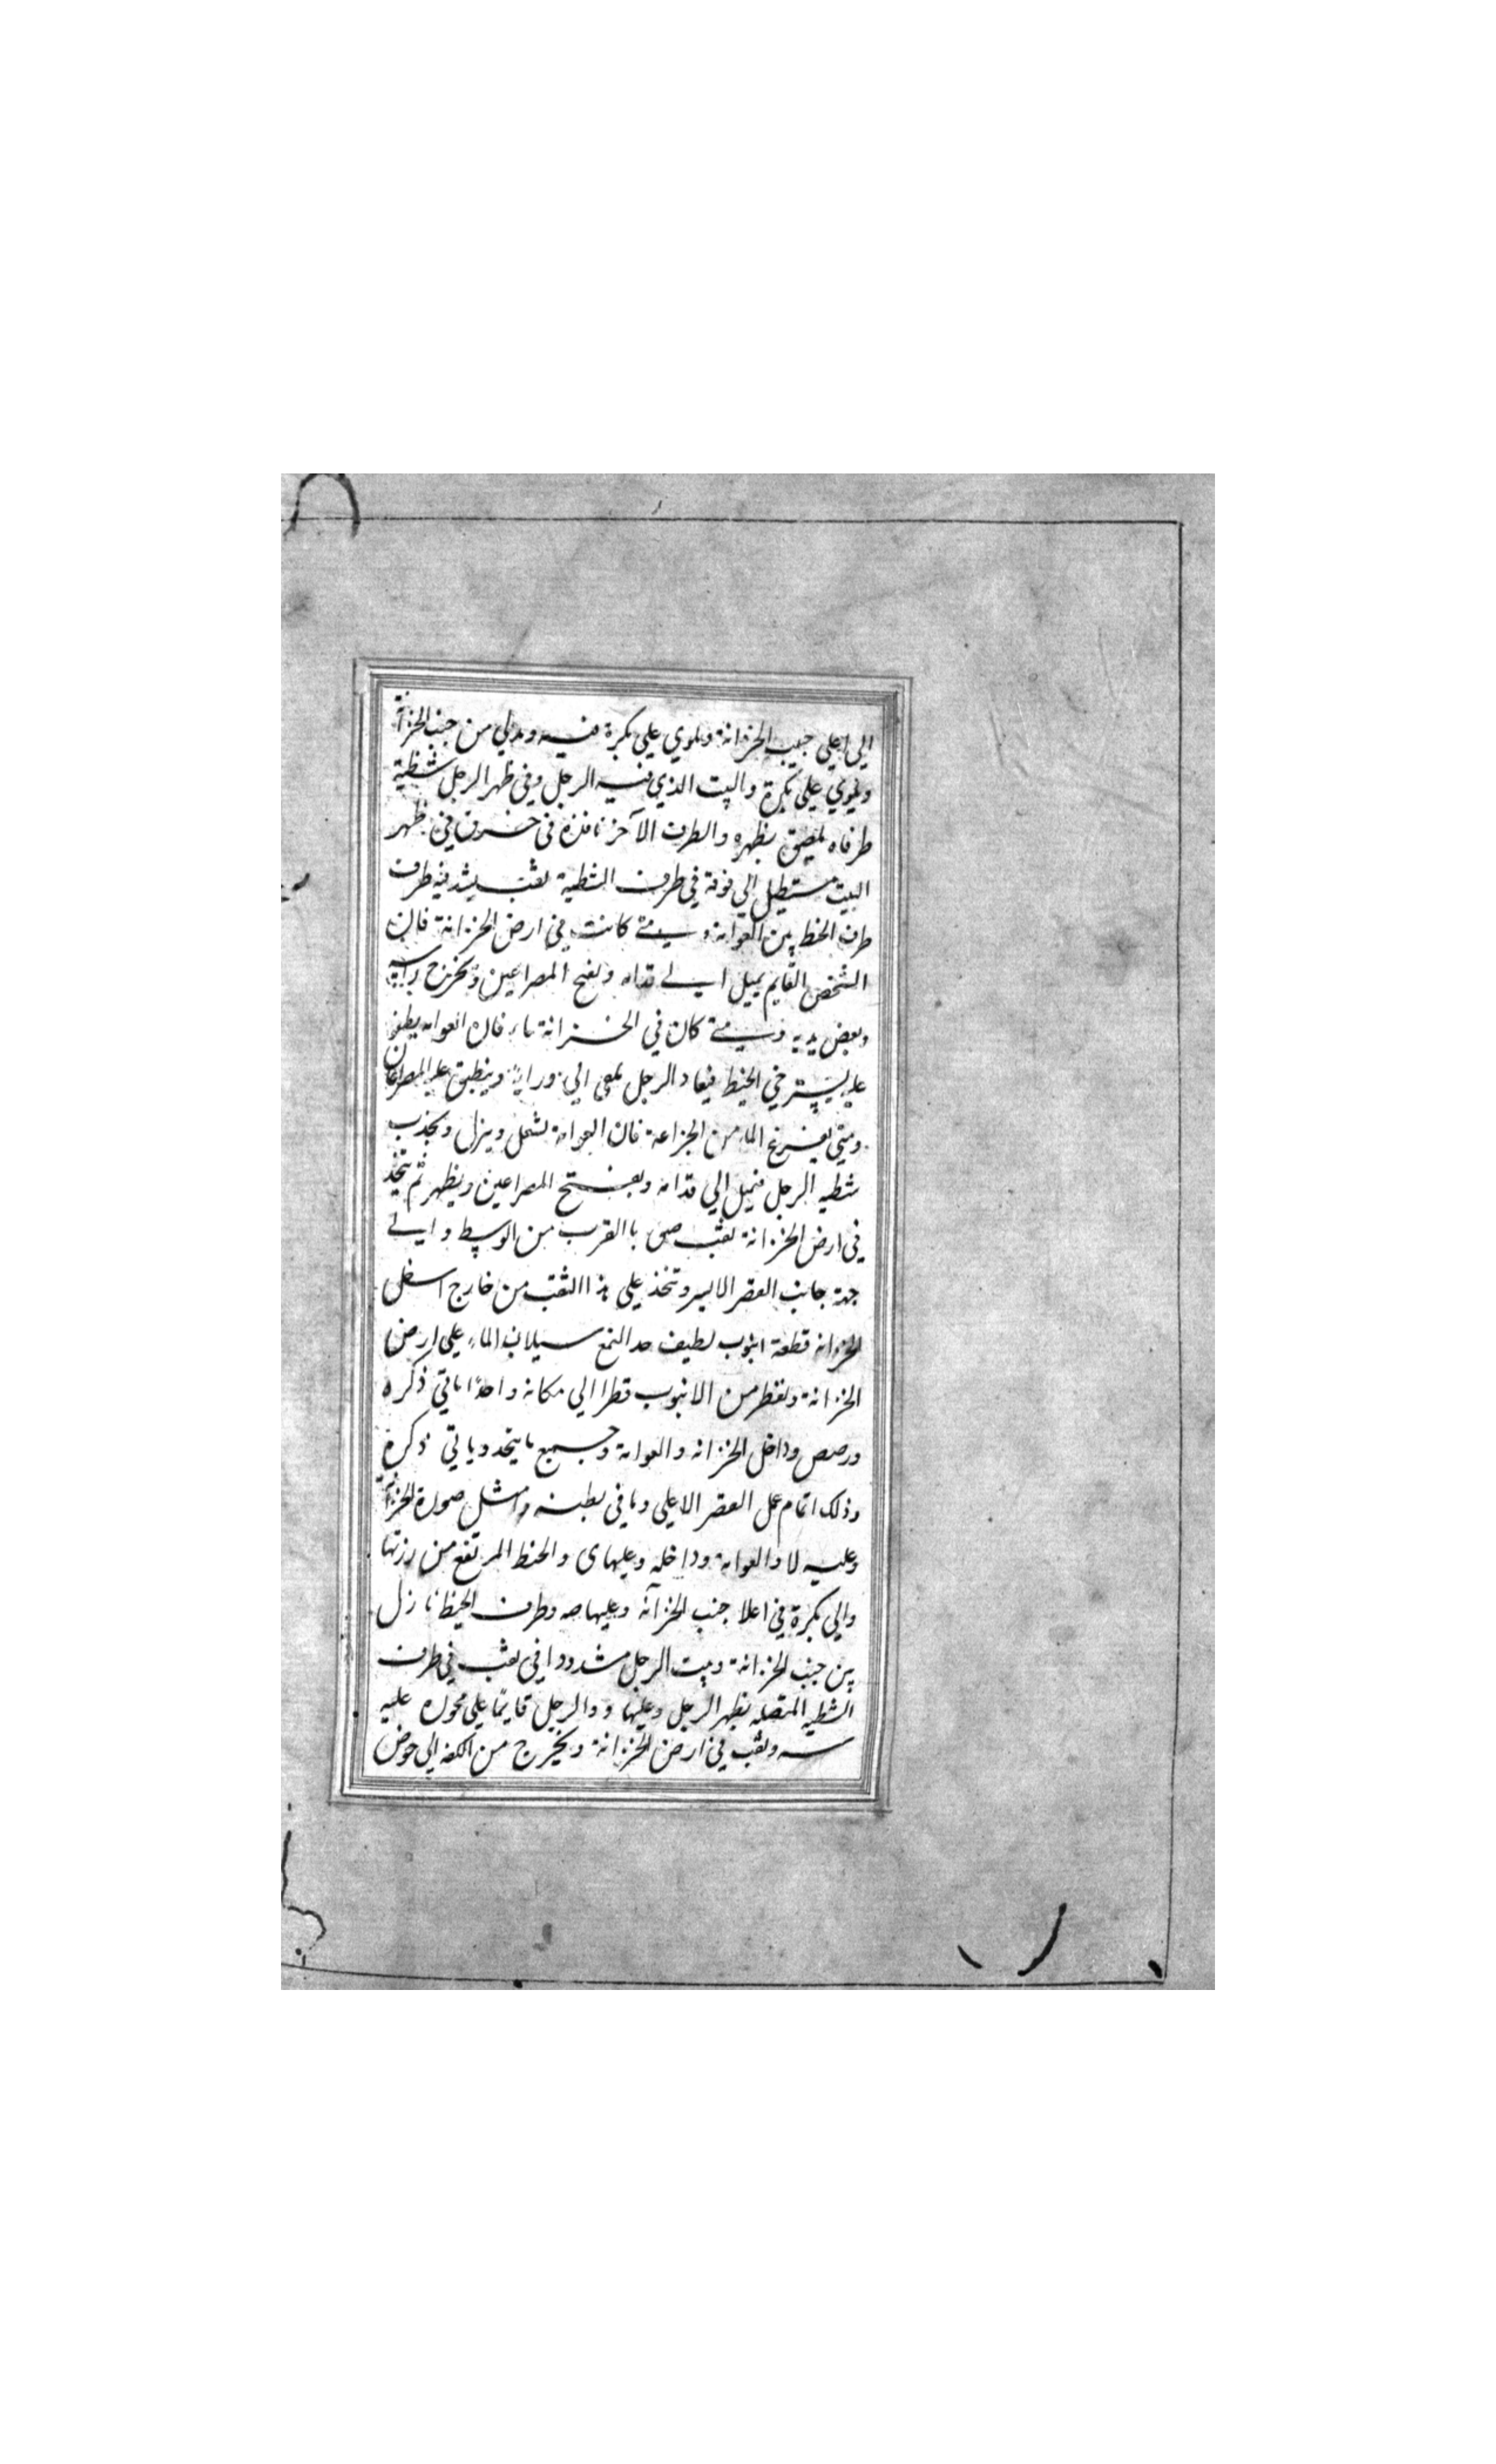 الي اعلي جنب الخزانة ويلوي علي بكرة فيه ويدلي من جنب الخزانة
ويلوي علي بكرة والبيت الذي فيه الرجل وفي ظهر الرجل شظية
طرفاه لصيق بظهره والطرف الآخر نافذة في خرق في ظهر
البيت مستطيل الي فوقه في طرف الشظية ثقب يشد فيه طرف
طرف الخيط بين العوامة ومتي كانت في ارض الخزانة فان
الشخص القايم يميل الي قدامه ويفتح المصراعين ويخرج راسه
وبعض يديه ومتي كان في الخزانة ماء فان العوامه يطفو
عليه يسترخي الخيط فيعاد الرجل الي ورايه وينطبق عليه المصراعان
ومتي يفرغ الماء من الخزاعة فان العوامة تثقل وينزل ويجذب
شطيه الرجل فيميل الي قدامه ويفتح المصراعين ويظهر ثم يتخذ
في ارض الخزانة ثقب ص باالقرب من الوسط والي
جهة جانب القصر الايسر وتخذ علي هذا الثقب من خارج اسفل
الخزانه قطعة انبوب لطيف جدا لتمنع سيلان الماء علي ارض
الخزانة ويقطر من الانبوب قطرا الي مكانه واحدًا ياتي ذكره
ورصص وداخل الخزانه والعوامة وجميع ما يتخذ وياتي ذكره
وذلك اتمام عمل القصر الاعلي وما في بطنه وامثل صورة الخزانة
وعليه لا والعوامة وداخله وعليها ى والخيط المرتفع من رزتها
والي بكرة في اعلا جنب الخزآنه وعليها صه وطرف الخيط نازل
بين جنب الخزانة وبيت الرجل مشدودا في ثقب في طرف
الشطيه المتصله بظهر الرجل وعليها و والرجل قايمًا علي محوره عليه
سه وثقب في ارض الخزانة ويخرج من الكفه الي حوض